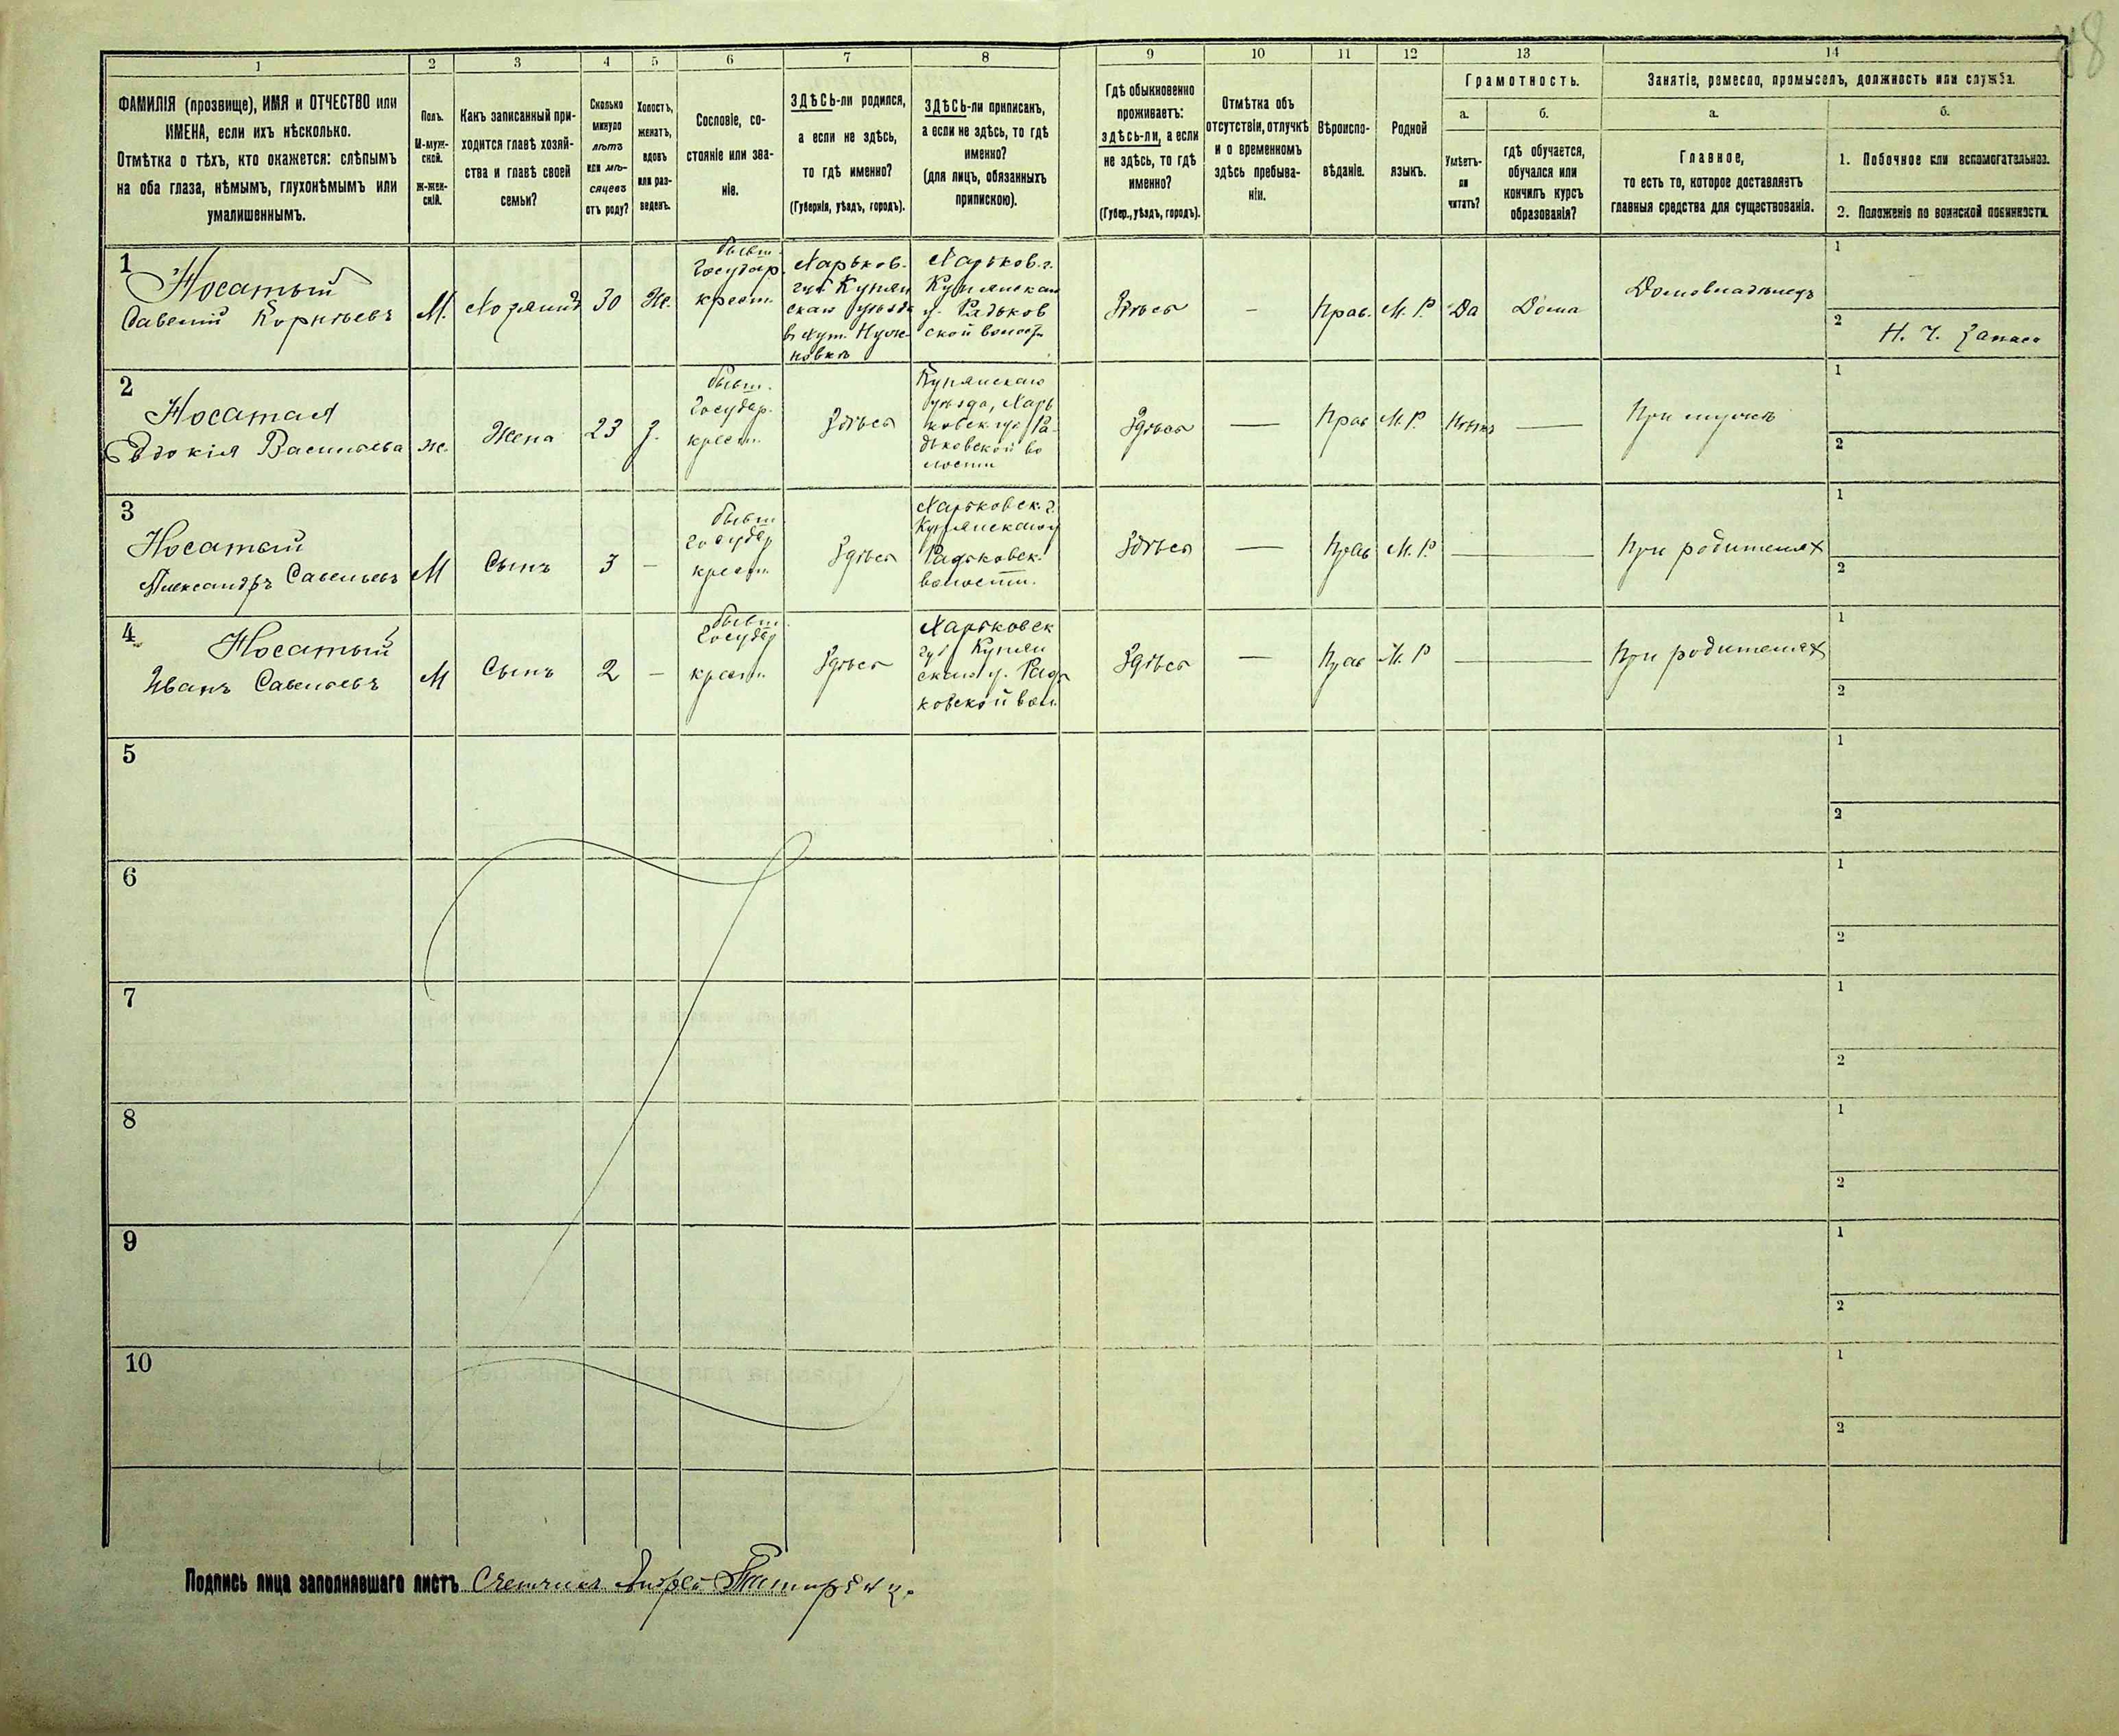 48
1 2 3 4 5 6 7 8 9 10 11 12 13 14
ФАМИЛІЯ (прозвище), ИМЯ и ОТЧЕСТВО или
ИМЕНА, если ихъ нѣсколько.
Отмѣтка о тѣхъ, кто окажется: слѣпымъ
на оба глаза, нѣмымъ, глухонѣмымъ или
умалишеннымъ.
Полъ.
М-муж-
ской.
ж-жен-
скій.
Какъ записанный при-
ходится главѣ хозяй-
ства и главѣ своей
семьи?
Сколько
минуло
лѣтъ
или мѣ-
сяцевъ
отъ роду?
Холостъ,
женатъ,
вдовъ
или раз-
веденъ.
Сословіе, со-
стояніе или зва-
ніе.
ЗДѢСЬ-ли родился,
а если не здѣсь,
то гдѣ именно?
(Губернія, уѣздъ, городъ).
ЗДѢСЬ-ли приписанъ,
а если не здѣсь, то гдѣ
именно?
(для лицъ, обязанныхъ
припискою).
Гдѣ обыкновенно
проживаетъ:
здѣсь-ли, а если
не здѣсь, то гдѣ
именно?
(Губер., уѣздъ, городъ).
Отмѣтка объ
отсутствіи, отлучкѣ
и о временномъ
здѣсь пребыва-
ніи.
Вѣроиспо-
вѣданіе.
Родной
языкъ.
Грамотность.
а.
Умѣетъ-
ли
читать?
б.
гдѣ обучается,
обучался или
кончилъ курсъ
образованія?
Занятіе, ремесло, промыселъ, должность или служба.
а.
Главное,
то есть то, которое доставляетъ
главныя средства для существованія.
б.
1. Побочное или вспомогательное.
2. Положеніе по воинской повинности.
1
Носатый
Савелій Корнѣевъ
М.
Хозяинъ
30
Же.
бывш.
Государ.
крест.
Харьков.
губ. Купян
скаго уѣзда
въ хут.
новкѣ
Харьков. г.
Купянскаго
у. Радьков
ской волост.
Здѣсь
-
Прав.
М. Р.
Да
Дома
Домовладѣлецъ
1
2
Н. Ч. Запаса
2
Носатая
Евдокія Васильева
Же.
Жена
23
З.
бывш.
Государ.
крест.
Здѣсь
Купянскаго
уѣзда, Харь
ковск. губ. Ра
дьковской во
лости
Здѣсь
—
Прав
М. Р.
Нѣтъ
—
При мужѣ
1
2
3
Носатый
Александръ Савельевъ
М
Сынъ
3
-
бывш
государ
крест.
Здѣсь
Харьковск. г.
Купянскаго у
Радьковск.
волости.
Здѣсь
—
Прав
М. Р
—
При родителях
1
2
4
Носатый
Иванъ Савельевъ
М
Сынъ
2
-
бывш.
Государ
крест.
Здѣсь
Харьковск
губ. Купян
скаго у. Радь
ковской вол.
Здѣсь
—
Прав
М. Р
—
При родителях
1
2
5
1
2
6
1
2
7
1
2
8
1
2
9
1
2
10
1
2
Подпись лица заполнявшаго листъ Счетчикъ Андрей